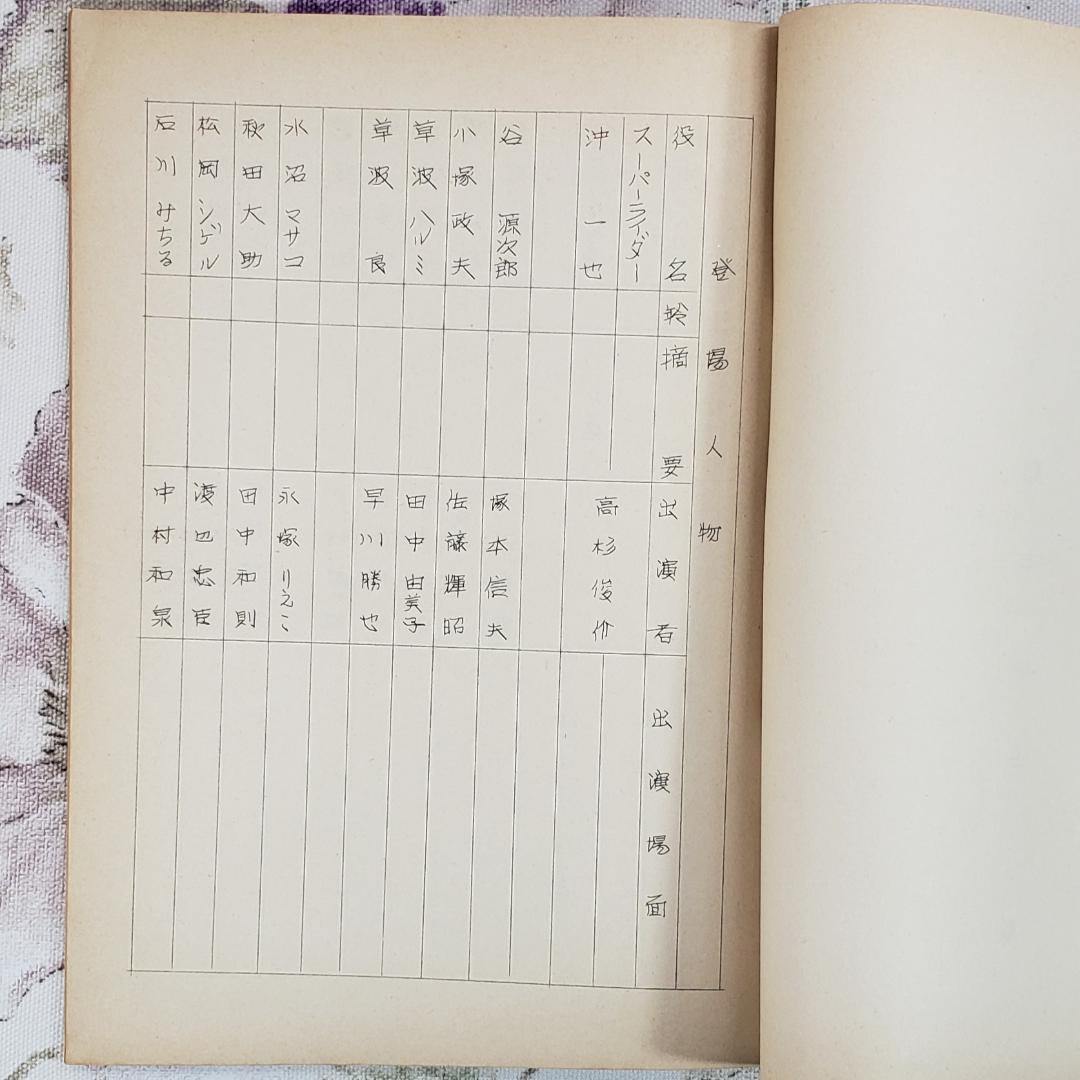 登場人物
役名 齢 摘要 出演者 出演場面
スーパーライダー
沖一也 高杉俊介
谷源次郎 塚本信夫
小塚政夫 佐藤輝昭
草波ハルミ 田中由美子
草波良 早川勝也
水沼マサコ 永塚りえこ
秋田大助 田中和則
松岡シゲル 渡辺忠臣
石川みちる 中村和泉